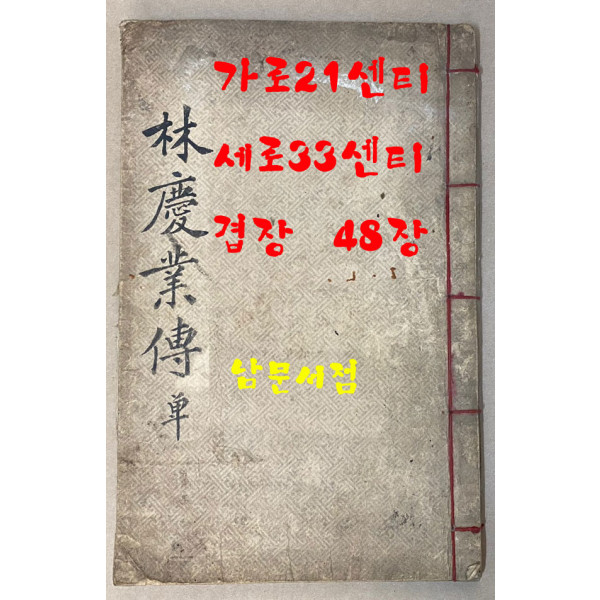 林慶業傳 単
가로21센티
세로33센티
겹장 48장
남문서점